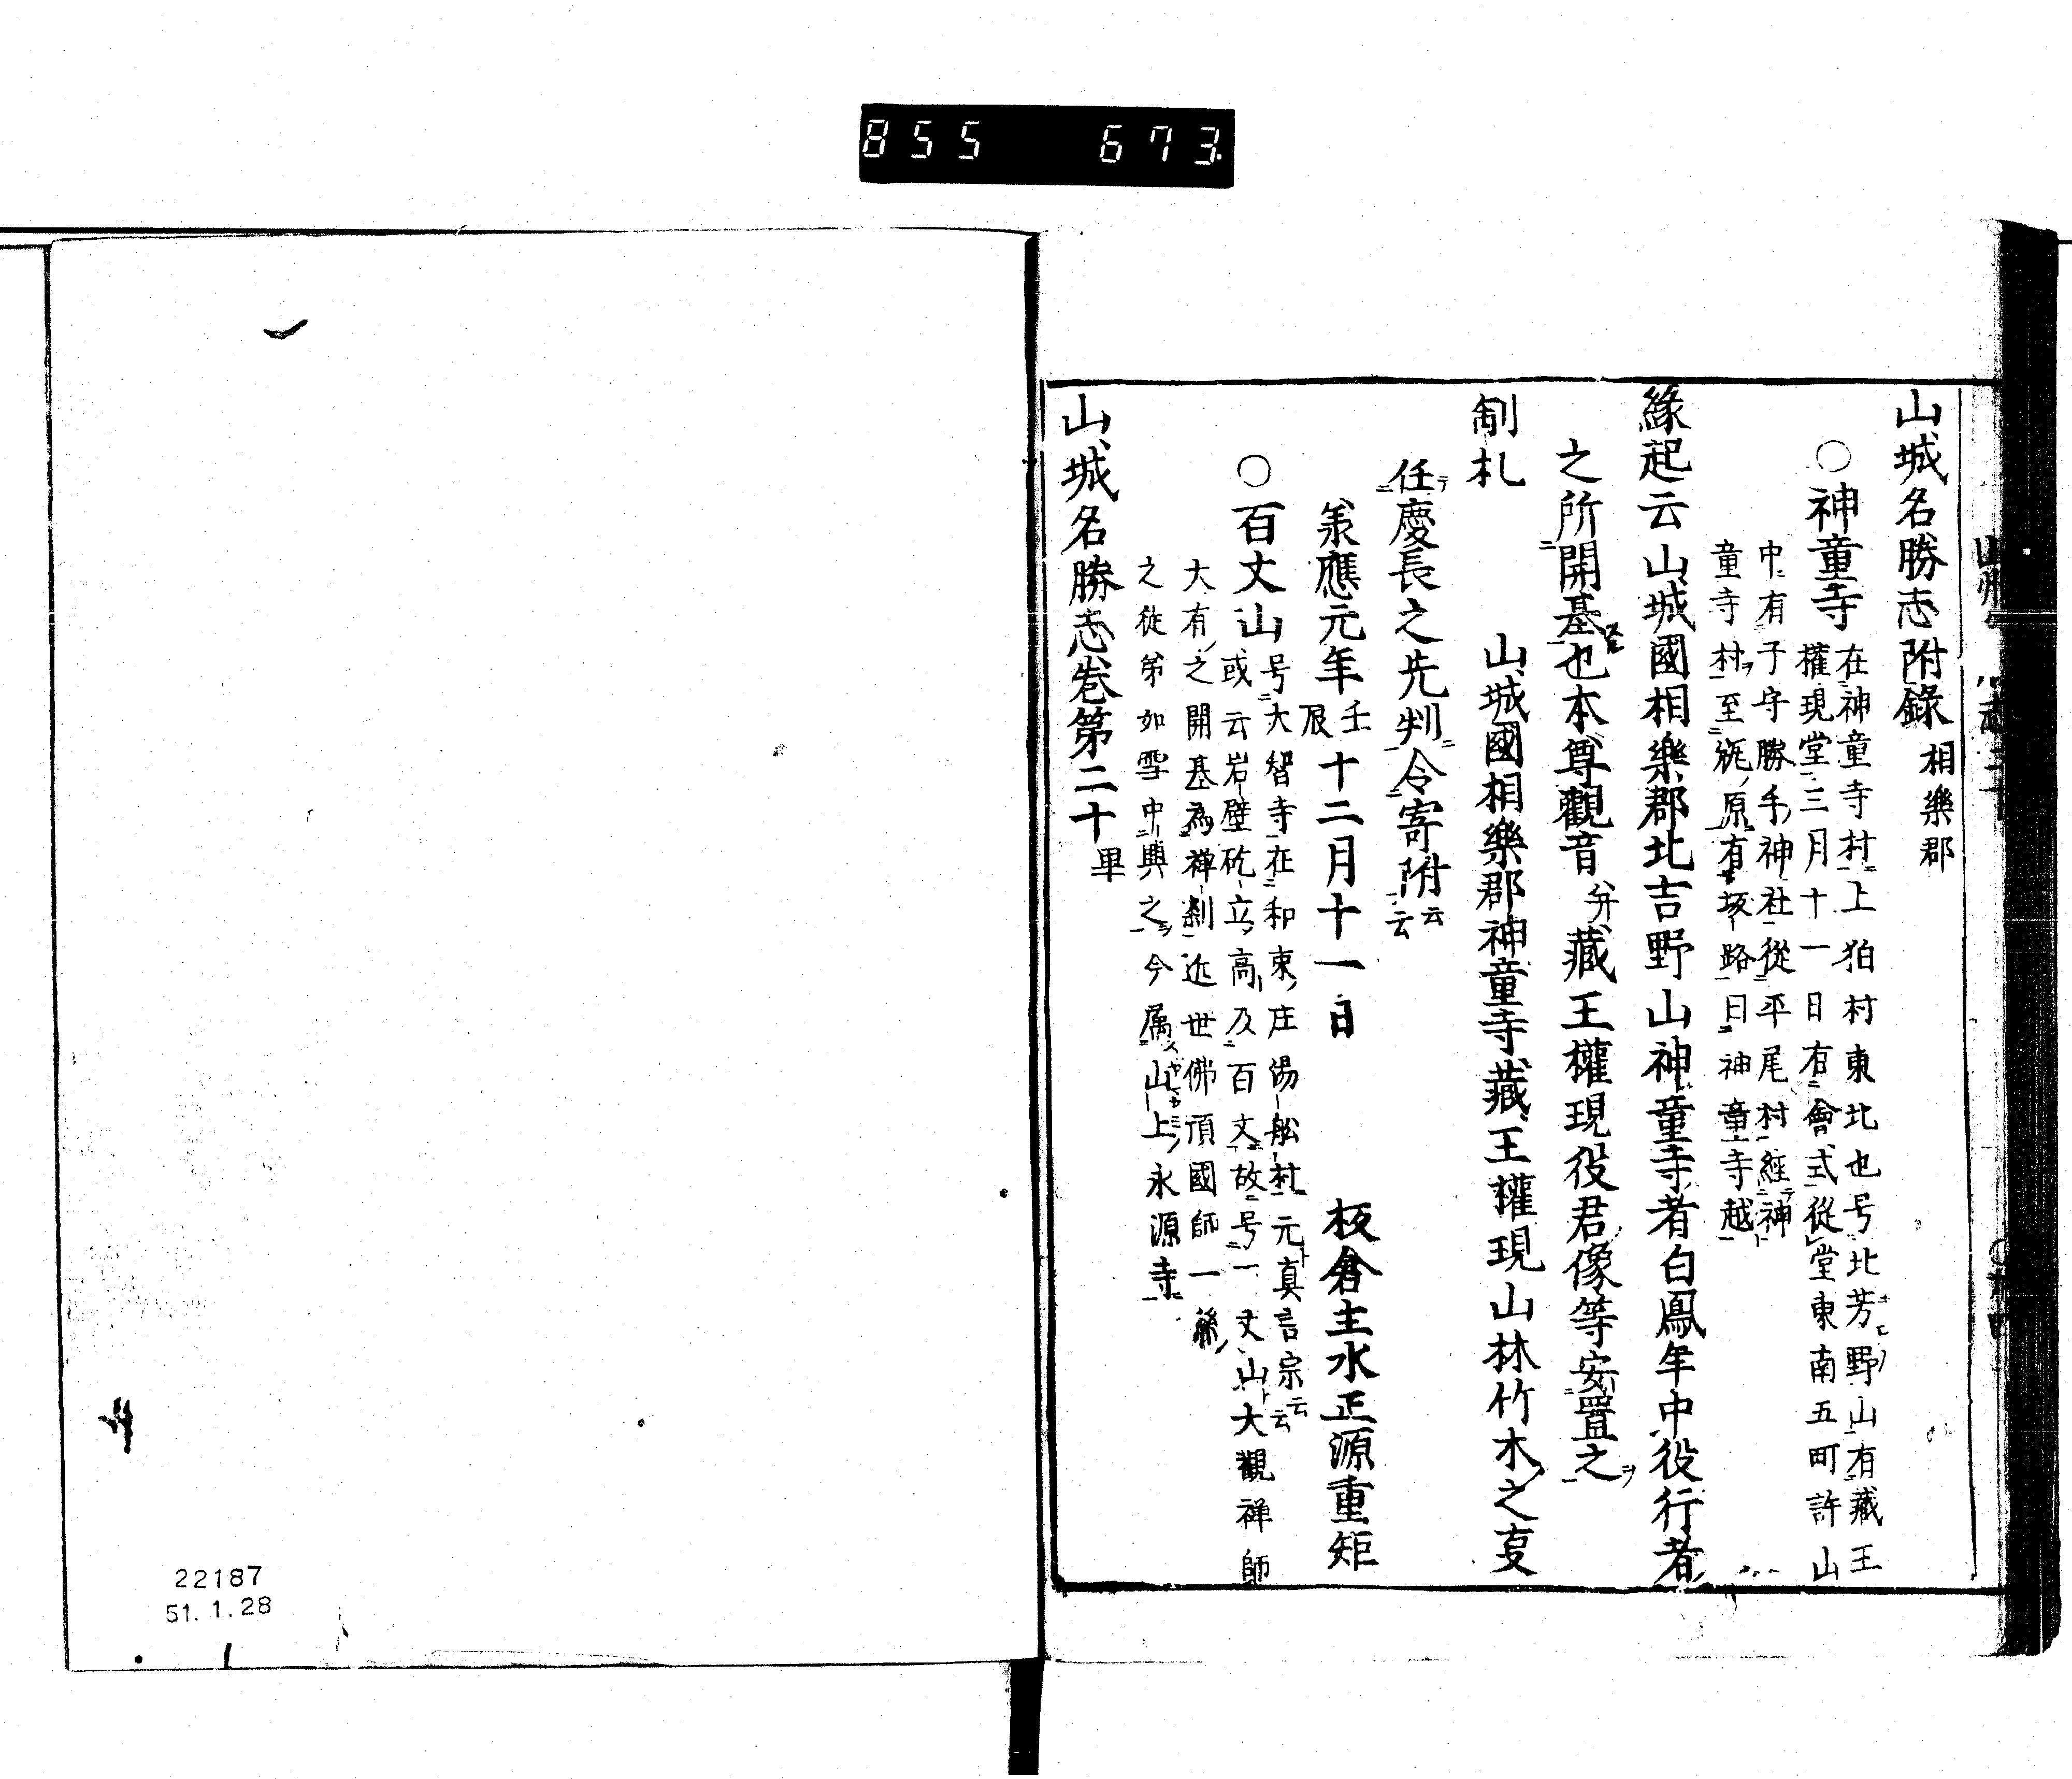 855 673
山城名勝志附錄 相樂郡
○神童寺 在神童寺村上狛村東北也号北芳野山有藏王
權現堂三月十一日有會式從堂東南五町許山
中有子守勝手神社從平尾村經神
童寺村至瓶原有坂路曰神童寺越
緣起云山城國相樂郡北吉野山神童寺者白鳳年中役行者
之所開基也本尊觀音并藏王權現役君像等安置之
制札
山城國相樂郡神童寺藏王權現山林竹木之叓
任慶長之先判令寄附云云
承應元年壬辰十二月十一日 板倉主水正源重矩
○百丈山 号大智寺在和束庄湯舩村元真言宗云云
或云岩壁矻立高及百丈故号一丈山大觀禅師
大有之開基為禅刹近世佛頂國師一絲
之徒弟如雪中興之今属山上永源寺
山城名勝志卷第二十畢
22187
51.1.28